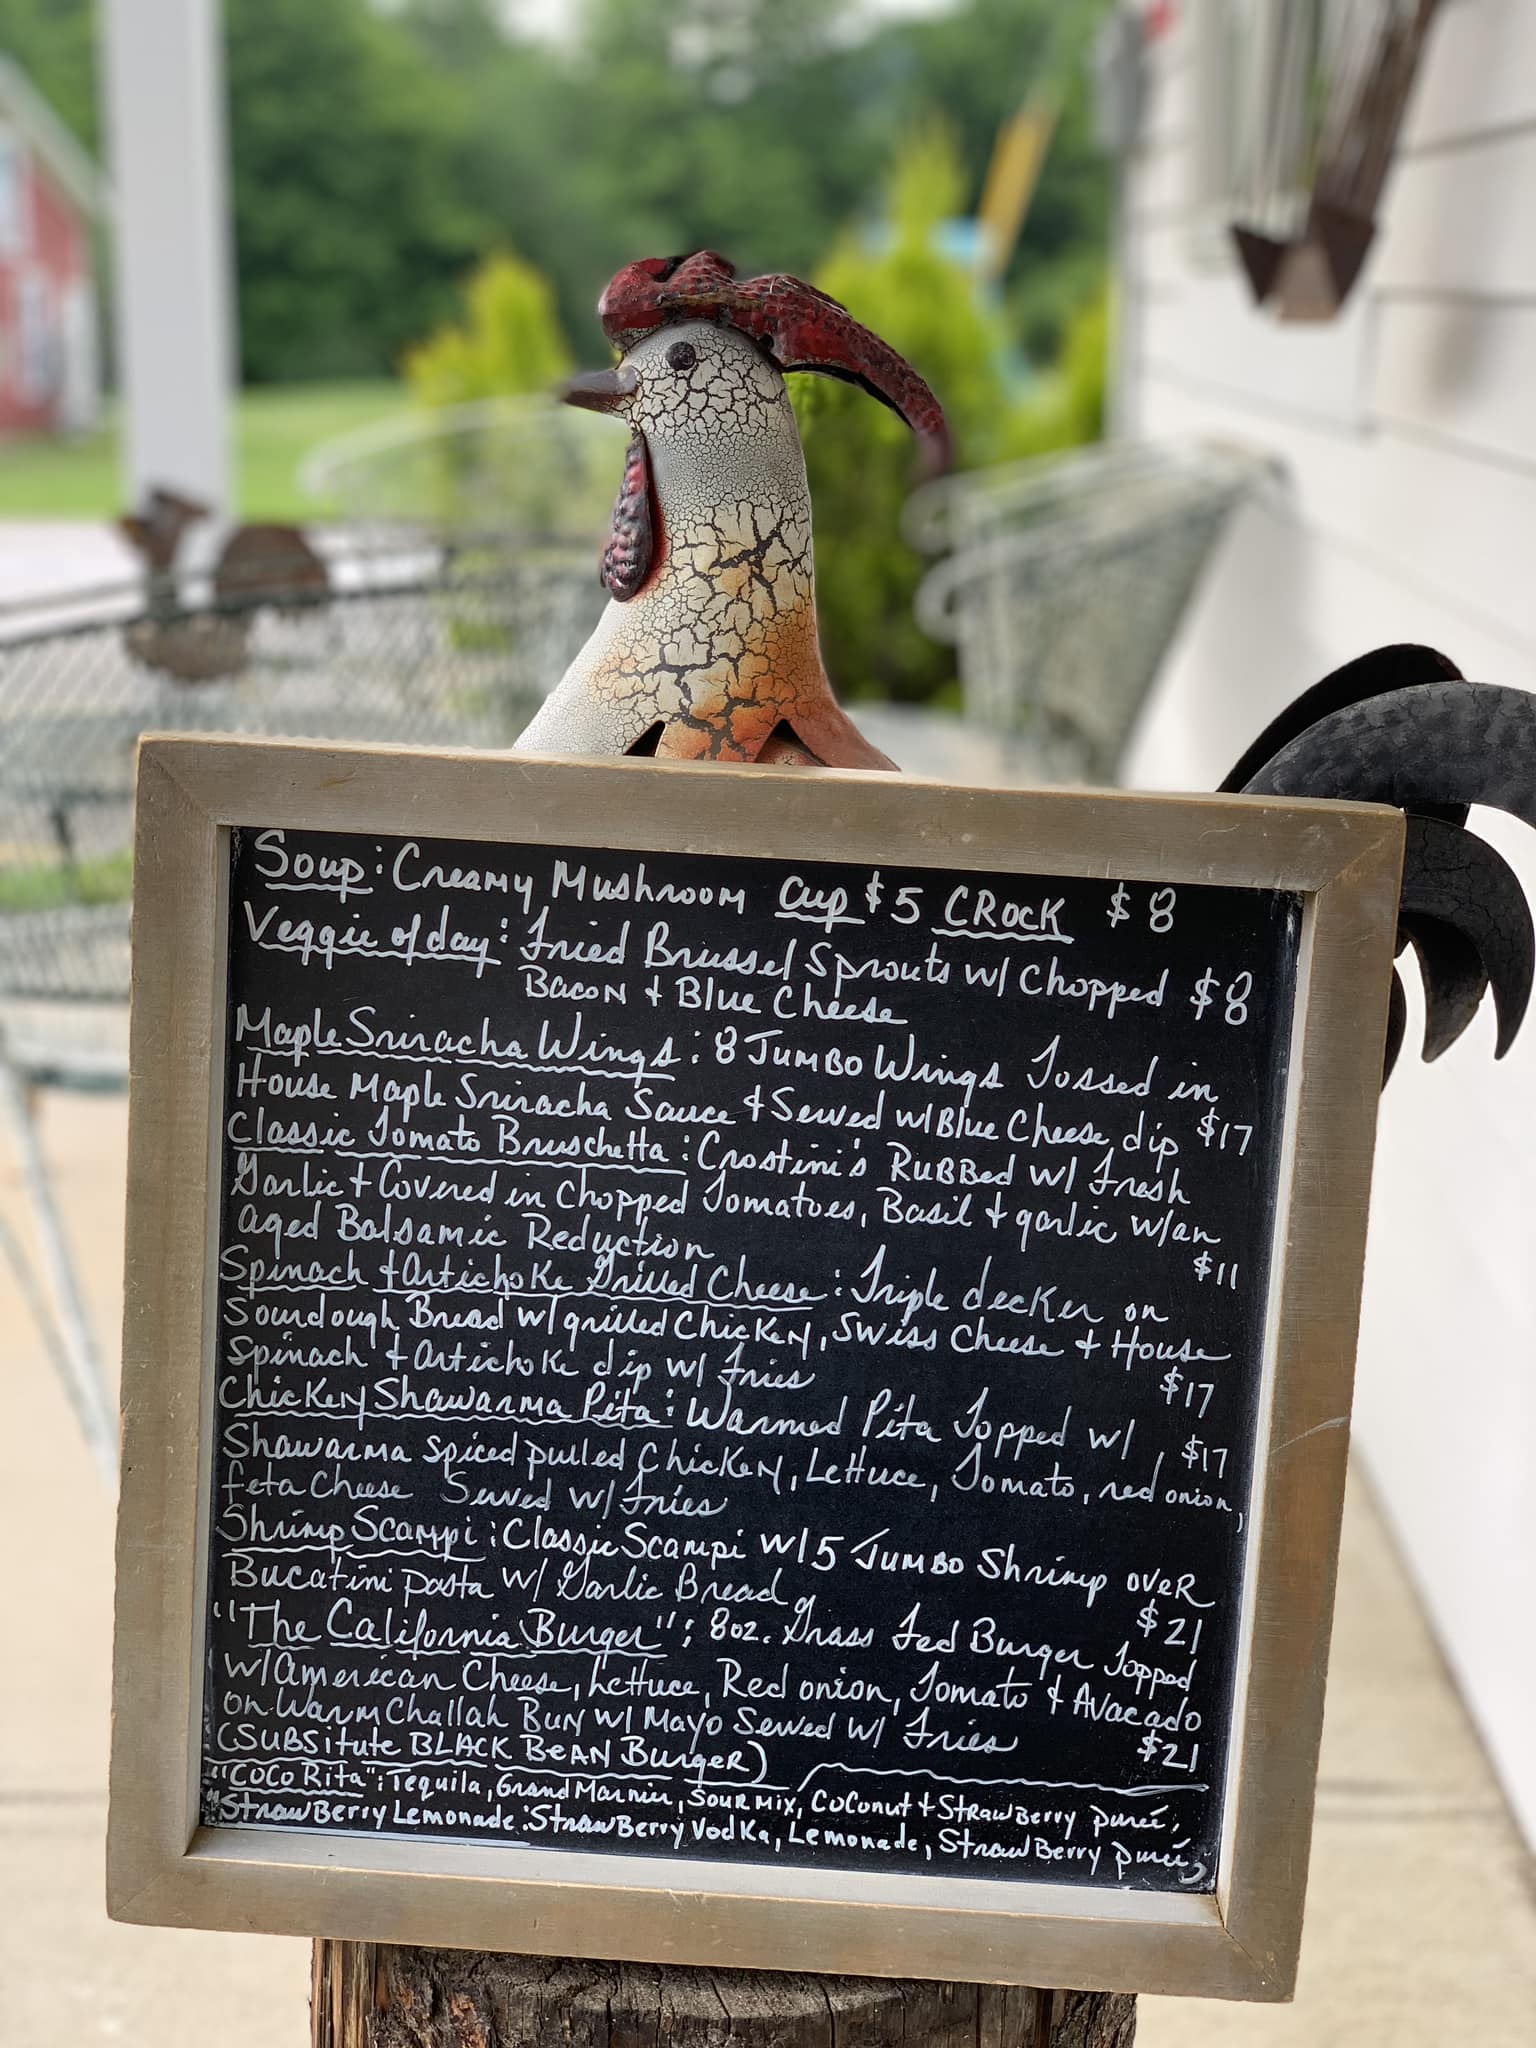 Soup: Creamy Mushroom Cup $5 CROCK $8
Veggie of day: Fried Brussel Sprouts w/ Chopped $8
Bacon + Blue Cheese
Maple Sriracha Wings: 8 Jumbo Wings Tossed in
House Maple Sriracha Sauce + Served w/Blue Cheese dip $17
Classic Tomato Bruschetta: Crostini's Rubbed w/ Fresh
Garlic + Covered in Chopped Tomatoes, Basil + garlic w/an
aged Balsamic Reduction $11
Spinach + Artichoke Grilled Cheese: Triple decker on
Sourdough Bread w/grilled Chicken, Swiss Cheese + House
Spinach + Artichoke dip w/ Fries $17
Chicken Shawarma Pita: Warmed Pita Topped w/ $17
Shawarma Spiced pulled Chicken, Lettuce, Tomato, red onion,
feta Cheese Served w/ Fries
Shrimp Scampi: Classic Scampi w/5 Jumbo Shrimp over
Bucatini pasta w/ Garlic Bread $21
"The California Burger": 8oz. Grass Fed Burger Topped
w/American Cheese, Lettuce, Red onion, Tomato + Avacado
on Warm Challah Bun w/ Mayo Served w/ Fries $21
(SUBSitute BLACK BEAN BurgeR)
"COCO Rita": Tequila, Grand Marnier, Sour Mix, Coconut + Strawberry purée,
"Strawberry Lemonade: Strawberry Vodka, Lemonade, Strawberry purée,